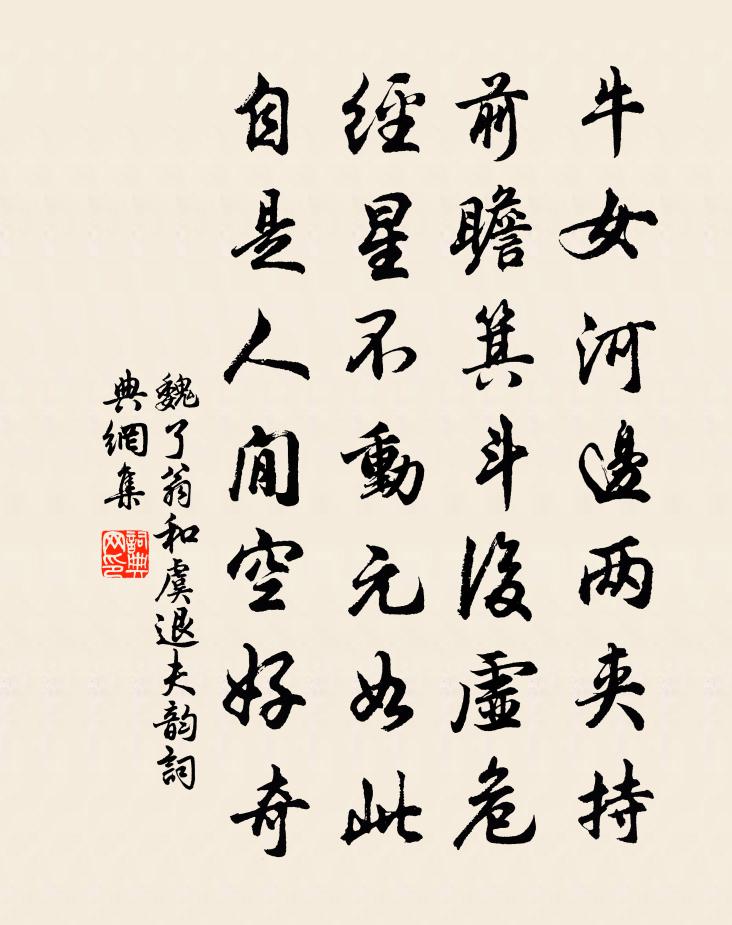 牛女河邊两夾持
前瞻箕斗後虛危
經星不動元如此
自是人間空好奇
魏了翁和虞退夫韵詞
典網集
詞典网印